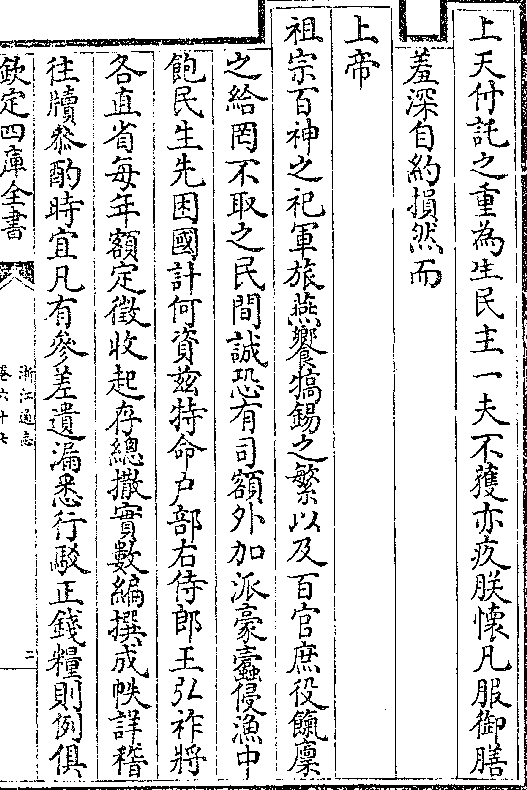 上天付託之重為生民主一夫不獲亦疚朕懷凡服御膳
羞深自約損然而
上帝
祖宗百神之祀軍旅燕饗犒錫之繁以及百官庶役餼廪
之給罔不取之民間誠恐有司額外加派豪蠹侵漁中
飽民生先困國計何資茲特命户部右侍郎王弘祚將
各直省每年額定徵收起存總撒實數編撰成帙詳稽
往牘參酌時宜凡有參差遺漏悉行駁正錢糧則例俱
欽定四庫全書
浙江通志
卷六十七
二